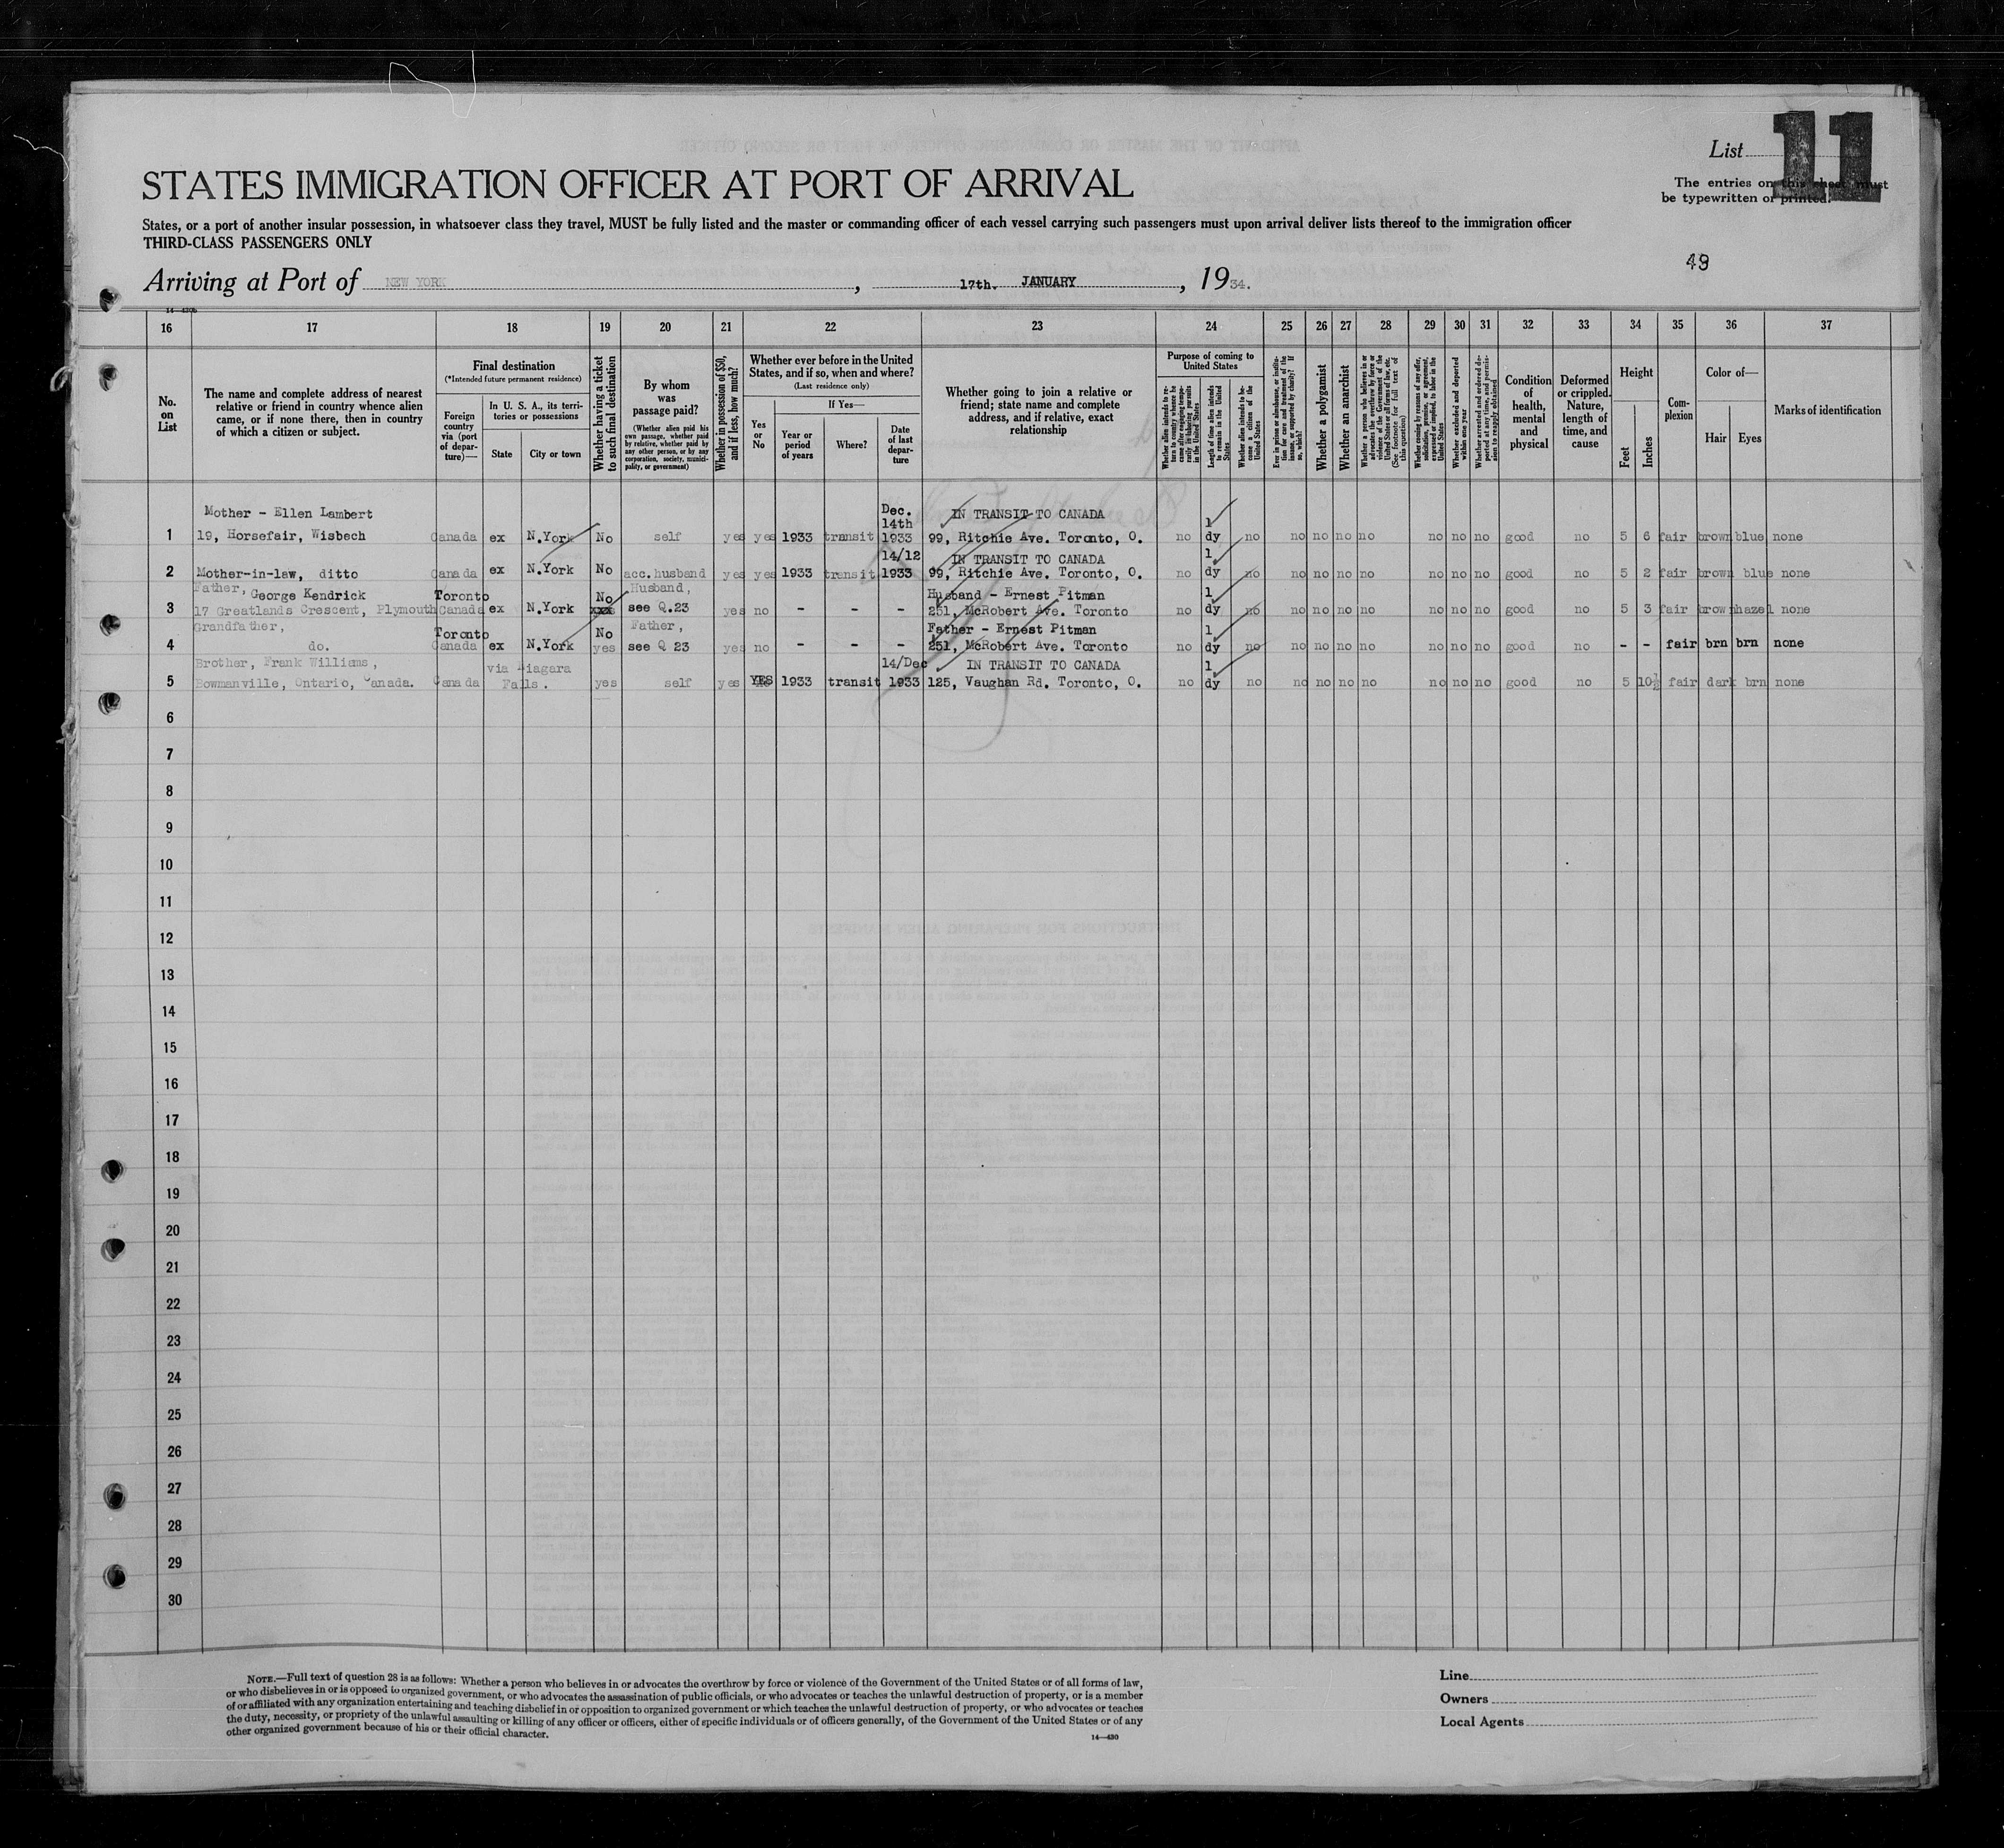 List 11
The entries on this sheet must
be typewritten or printed.
STATES IMMIGRATION OFFICER AT PORT OF ARRIVAL
States, or a port of another insular possession, in whatsoever class they travel, MUST be fully listed and the master or commanding officer of each vessel carrying such passengers must upon arrival deliver lists thereof to the immigration officer
THIRD-CLASS PASSENGERS ONLY
49
Arriving at Port of NEW YORK, 17th. JANUARY, 1934.
16 17 18 19 20 21 22 23 24 25 26 27 28 29 30 31 32 33 34 35 36 37
No. on List
The name and complete address of nearest
relative or friend in country whence alien
came, or if none there, then in country
of which a citizen or subject.
Final destination
(*Intended future permanent residence)
Foreign country via (port of departure)—
In U. S. A., its territories or possessions
State
City or town
Whether having a ticket to such final destination
By whom was passage paid?
(Whether alien paid his own passage, whether paid by relative, whether paid by any other person, or by any corporation, society, municipality, or government)
Whether in possession of $50, and if less, how much?
Whether ever before in the United States, and if so, when and where?
(Last residence only)
Yes or No
If Yes—
Year or period of years
Where?
Date of last departure
Whether going to join a relative or
friend; state name and complete
address, and if relative, exact
relationship
Purpose of coming to United States
Whether alien intends to return to country whence he came after engaging temporarily in laboring pursuits in the United States
Length of time alien intends to remain in the United States
Whether alien intends to become a citizen of the United States
Ever in prison or almshouse, or institution for care and treatment of the insane, or supported by charity? If so, which?
Whether a polygamist
Whether an anarchist
Whether a person who believes in or advocates the overthrow by force or violence of the Government of the United States or all forms of law, etc. (See footnote for full text of this question)
Whether coming by reasons of any offer, solicitation, promise, or agreement, expressed or implied, to labor in the United States
Whether excluded and deported within one year
Whether arrested and ordered deported at any time, and permission to reapply obtained
Condition of health, mental and physical
Deformed or crippled. Nature, length of time, and cause
Height
Feet
Inches
Complexion
Color of—
Hair
Eyes
Marks of identification
Mother - Ellen Lambert Dec. 14th IN TRANSIT TO CANADA 1
1 19, Horsefair, Wisbech Canada ex N.York No self yes yes 1933 transit 1933 99, Ritchie Ave. Toronto, O. no dy no no no no no no no no good no 5 6 fair brown blue none
14/12 IN TRANSIT TO CANADA 1
2 Mother-in-law, ditto Canada ex N.York No acc. husband yes yes 1933 transit 1933 99, Ritchie Ave. Toronto, O. no dy no no no no no no no no good no 5 2 fair brown blue none
Father, George Kendrick Toronto No Husband, Husband - Ernest Pitman 1
3 17 Greatlands Crescent, Plymouth Canada ex N.York xxx see Q.23 yes no - - - 251, McRobert Ave. Toronto no dy no no no no no no no no good no 5 3 fair brown hazel none
Grandfather, Toronto No Father, Father - Ernest Pitman 1
4 do. Canada ex N.York yes see Q 23 yes no - - - 251, McRobert Ave. Toronto no dy no no no no no no no no good no - - fair brn brn none
Brother, Frank Williams, via Niagara 14/Dec IN TRANSIT TO CANADA 1
5 Bowmanville, Ontario, Canada. Canada Falls. yes self yes YES 1933 transit 1933 125, Vaughan Rd. Toronto, O. no dy no no no no no no no no good no 5 10½ fair dark brn none
6
7
8
9
10
11
12
13
14
15
16
17
18
19
20
21
22
23
24
25
26
27
28
29
30
NOTE.—Full text of question 28 is as follows: Whether a person who believes in or advocates the overthrow by force or violence of the Government of the United States or of all forms of law,
or who disbelieves in or is opposed to organized government, or who advocates the assassination of public officials, or who advocates or teaches the unlawful destruction of property, or is a member
of or affiliated with any organization entertaining and teaching disbelief in or opposition to organized government or which teaches the unlawful destruction of property, or who advocates or teaches
the duty, necessity, or propriety of the unlawful assaulting or killing of any officer or officers, either of specific individuals or of officers generally, of the Government of the United States or of any
other organized government because of his or their official character.
14—430
Line
Owners
Local Agents